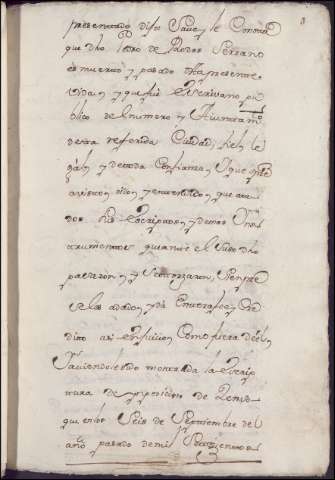 presentado dijo Save y le Consta
que dho Pedro de Prados Serrano
es muerto y pasado de la presente
vida y que fue Escrivano pu
blico del numero y Aiuntam.
de esta referida Ciudad, fiel, le
gal y de toda Confianza, Y que
visto oido y entendido que a
dos Escripturas y demas Yns
trumentos que ante el Suso dho
pasaron y Se otorgaron, Siempre
Se les a dado y da Entera fee y Cre
dito asi en Juicio Como fuera del, y
Haviendosele mostrado la Escrip
tura de ymposicion de Zenso
que en los Seis de Septiembre del
año pasado de mil Setecientos